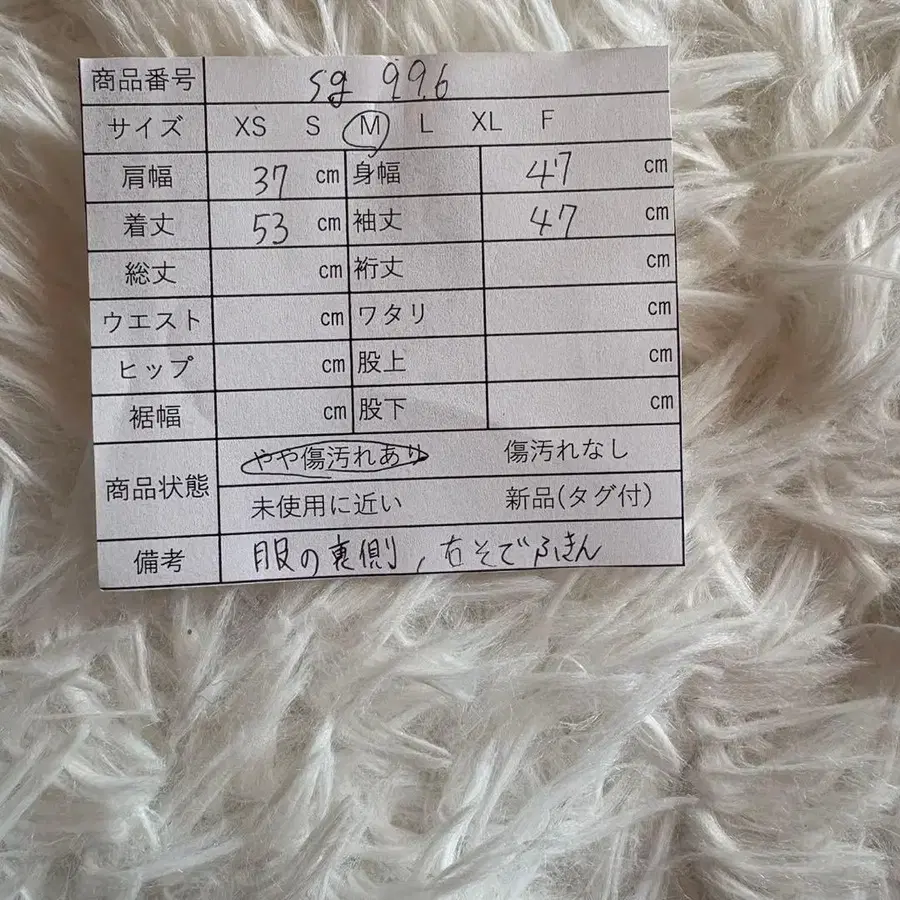 商品番号 sg 996
サイズ XS S M L XL F
肩幅 37 cm 身幅 47 cm
着丈 53 cm 袖丈 47 cm
総丈 cm 裄丈 cm
ウエスト cm ワタリ cm
ヒップ cm 股上 cm
裾幅 cm 股下 cm
商品状態 やや傷汚れあり 傷汚れなし
未使用に近い 新品(タグ付)
備考 服の裏側,右そで